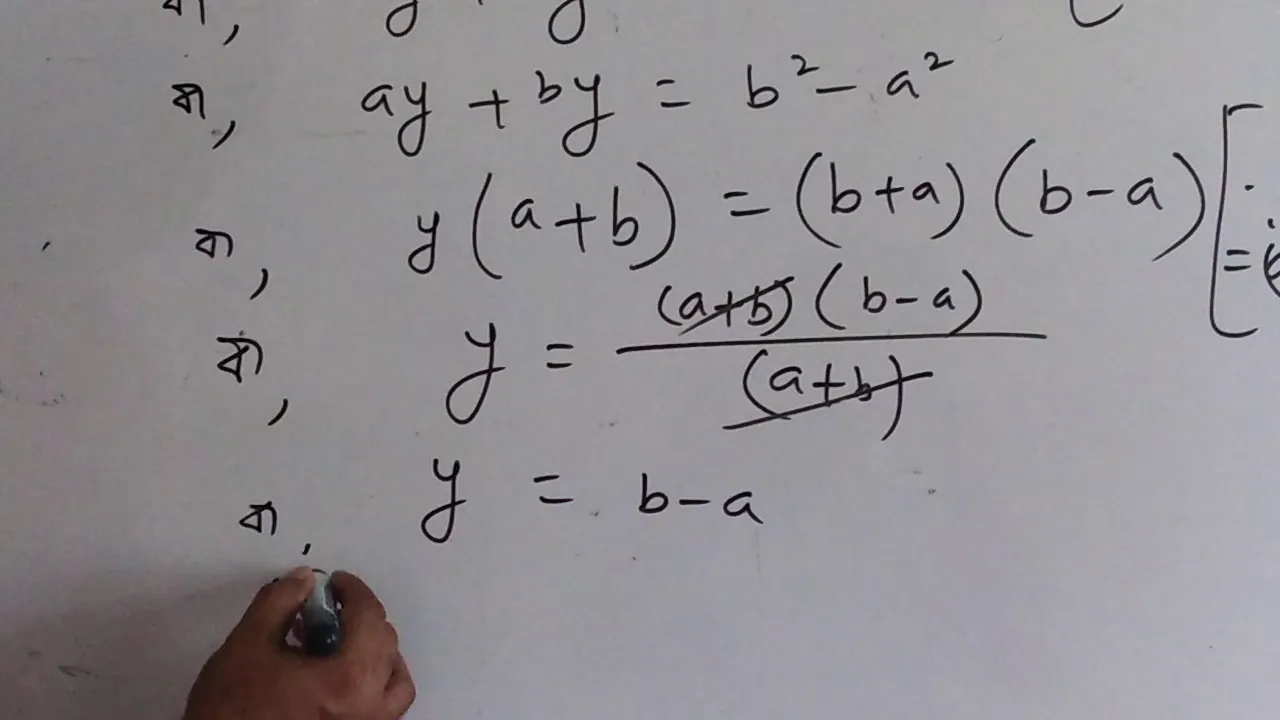 বা, ay + by = b² - a²
বা, y (a+b) = (b+a) (b-a) [
বা, y = (a+b) (b-a) / (a+b)
বা, y = b-a